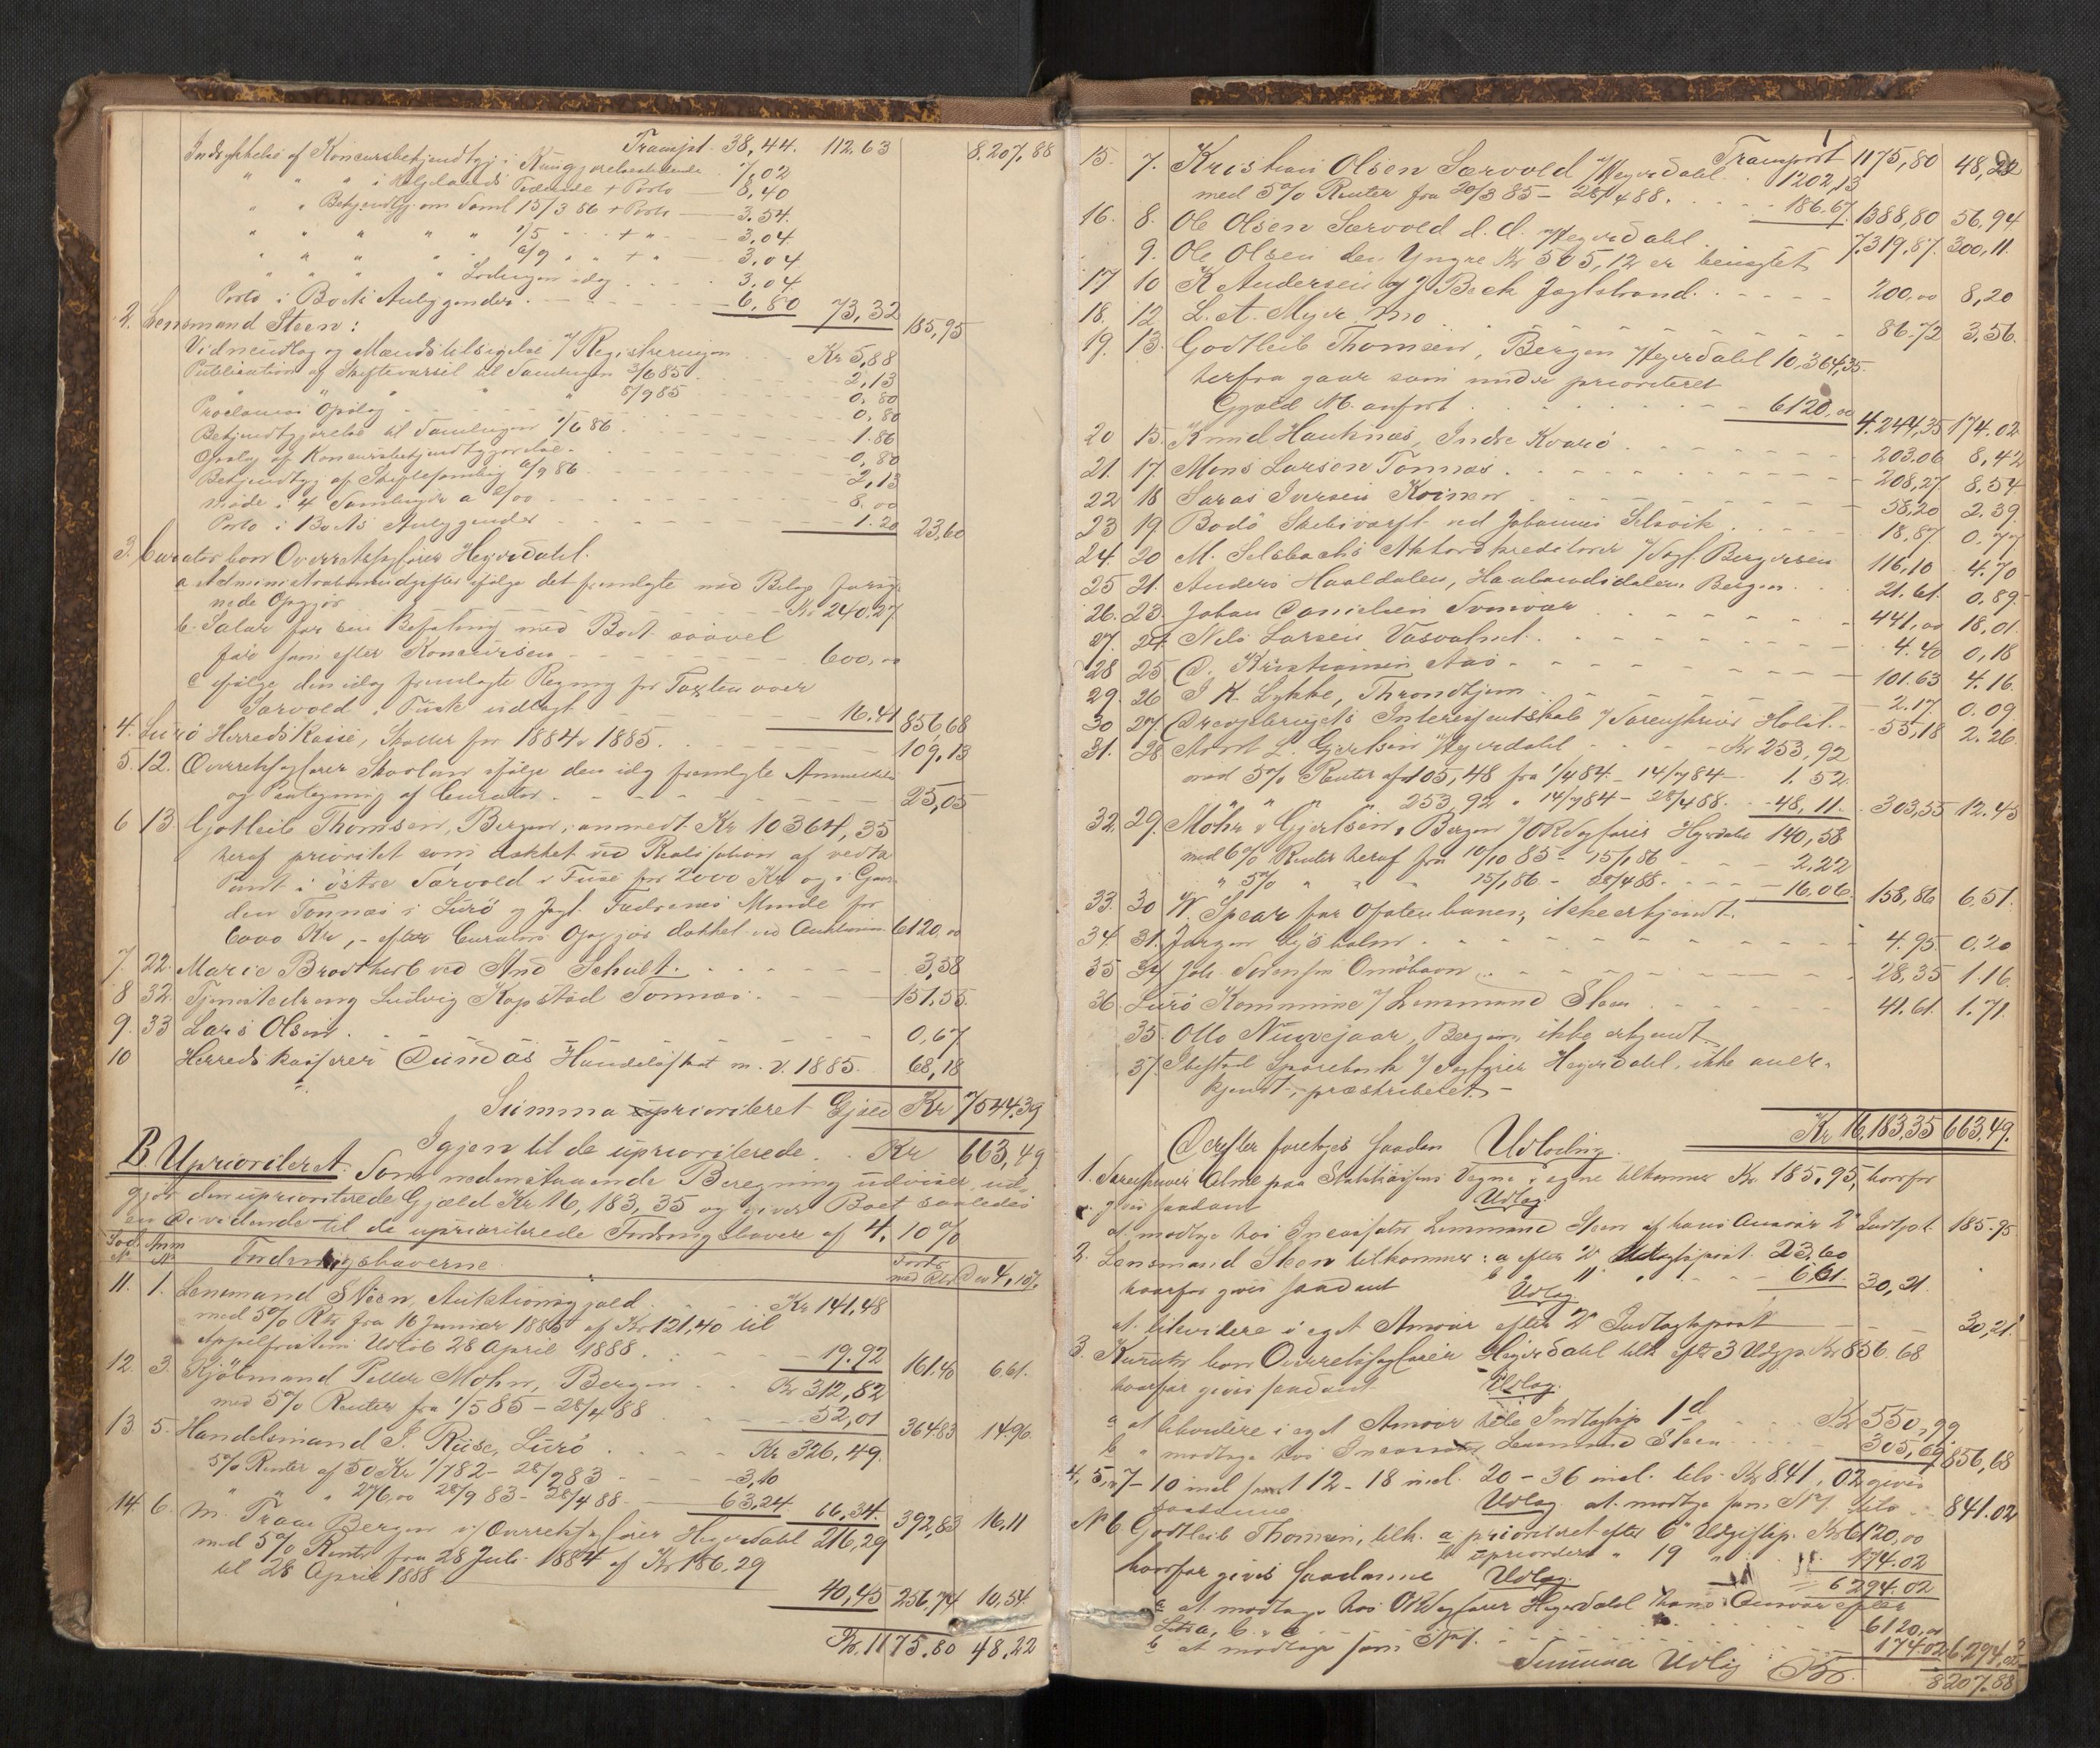 Transpt. 38,44. 112.63 8.207,88
Indrykkelse af Koncursbekjendtgj. i Kungjørelsestidende 7,02
" " " i Helgelands Tidende + Porto 8,40
" " Bekjendtgj. om Saml. 15/3 86 + Porto 3.54.
" " " " " 1/5 " + " 3,04.
" " " " " 6/9 " + " 3,04
" " " " idag 3.04
Porto i Boets Anliggender 6,80 73,32 185,95
2. Lensmand Steen:
Vidneudlæg og Mændstilsigelse v/ Registreringen Kr 5,88
Publication af Skiftevarsel til Samlingen 3/6 85 2,13
" " " " 8/9 85 0,80
Proclamas Opslag 0,80
Bekjendtgjørelse til Samlingen 1/6 86 1.86
Opslag af Koncursbekjendtgjørelse 0,80
Bekjendtgj. af Skiftesamling 6/9 86 2,13
Møde i 4 Samlinger a 2/00 8.00
Porto i Boets Anliggender 1.20 23,60
3. Curator bon. Overretssagfører Hejerdahl.
a. Administrationsudgifter ifølge det fremlagte med Bilag forsy-
nede Opgjør Kr 240.27
b. Salær for sin Befatning med Boet saavel
før som efter Koncursen 600,00
c. ifølge den idag fremlagte Regning for Taxten over
Sørvold i Fuse udlagt 16.41 856,68
4. Lurø Herredskasse, Skatter for 1884 & 1885. 109,13
5. 12. Overretssagfører ifølge den idag fremlagte Anmeldelse
og Paategning af Curator 25,05
6 13 Gotleib Thomsen, Bergen, anmeldt Kr 10364,35
heraf prioritet som dækket ved Realisation af vedta
Pant i østre Særvold i Fuse for 2000 Kr og i Gaar-
den Tonnes i Lurø og Jagt. Fædrenes Minde for
6000 Kr, - efter Curators Opgjør dækket ved Auktionen 6120,00
7. 22. Marie Brodtkorb ved And Schult. 3,58
8 32. Tjenestedreng Ludvig Kopstad Tonnes 151,55.
9. 33 Lars Olsen. 0,67
10 Herredskasserer Dundas Handelsskat m. v. 1885. 68,18
Summa prioriteret Gjæld Kr 7544.39
Igjen til de uprioriterede Kr 663,49
B. Uprioriteret: Som nedenstaaende Beregning udviser, ud-
gjør den uprioriterede Gjæld Kr 16,183,35 og giver Boet saaledes
en Dividende til de uprioriterede Fordringshavere af 4,10 %
Fordringshaverne. Div 4,10 %
11. 1. Lensmand Steen, Auktionsgjæld Kr 141,48
med 5% Rter fra 16 Januar 1885 af Kr 121,40 til
Appelfristens Udløb 28 April 1888. 19.92 161.40 6.61.
12. 3. Kjøbmand Petter Mohn, Bergen Kr 312,82
med 5% Renter fra 1/5 85 – 28/4 88 52,01 364.83 14.96.
13 5. Handelsmand J. Riise, Lurø Kr 326,49.
5% Renter af 50 Kr 1/7 82 – 28/9 83 3,10
" " " 276,00 28/9 83 – 28/4 88 63,24 66,34. 392,83 16,11
14. 6. M. Traae Bergen v/ Overretssagfører Hejerdahl 216,29
med 5% Renter fra 28 Juli 1884 af Kr 186.29
til 28 April 1888 40,45 256,74 10,54.
Kr. 1175.80 48.22
Transport 1175,80 48,22
15. 7. Kristian Olsen Særvold v/ Hejerdahl 1202,13
med 5% Renter fra 20/3 85 – 28/4 88. 186.67. 1388,80 56,94.
16. 8. Ole Olsen Særvold d. d. v/ Hejerdahl 7.319,87. 300,11.
9. Ole Olsen den Yngre Kr 505,12 er benegtet
17 10 K Andersen og J. Beck Jagtstrand. 200,00 8,20
18. 12. L. A. Meyer Mo 86.72 3,56.
19. 13. Godtleib Thomsen, Bergen v/ Hejerdahl 10,364,35.
herfra gaar som under prioriteret
Gjæld N6. anført 6120,00 4.244,35 174.02
20 15. Knud Hauknæs, Indre Kvarø 203.06 8,42
21. 17. Mons Larsen Tonnes. 208,27 8.54
22 18 Iversen 58,20 2.39.
23 19. Bodø Skibsværft ved Johannes Selsvik 18,87 0.77
24. 20 M. Selsbachs Akkordkreditorer v/ Sagf. Bergersen 116,10 4.70
25 21. Anders Haaldalen, Haalandsdalen Bergen 21.61. 0,89.
26. 23 Johan Danielsen Svinvær 441,00 18,01.
27. 24. Nils Larsen Vasvatnet. 4.40 0,18
28 25 O. Kristiansen Aas 101.63 4.16.
29. 26 I. K. Lykke, Throndhjem 2.17 0.09
30 27. Orevsbrugets Interessentskab v/ Sorenskriver Holst. 55,18 2.26.
31. 28. Arnt L. Gjertsen v/ Hejerdahl Kr 253,92
med 5% Renter af 105,48 fra 1/4 84 – 14/7 84 1.52.
" " " " 253,92 " 14/7 84 – 28/4 88. 48,11. 303,55 12.45
32. 29. Mohr & Gjertsen, Bergen v/ ORSagfører Hejerdahl 140,58
med 6% Renter heraf fra 10/10 85 – 15/1 86 2,22
" 5% " " " 15/1 86 – 28/4 88. 16,06. 158,86 6,51.
33. 30 W. Spear for Ofotenbanen, ikke erkjendt.
34. 31. Jørgen Lysholm 4.95. 0,20
35 34 Joh. Sørensen Omøhavn 28,35 1.16.
36. Lurø Kommune v/ Lensmand Steen 41.61. 1.71.
35. Otto Bergen, ikke erkjendt
37. Ibestad Sparebank v/ Sagfører Hejerdahl, ikke aner-
kjendt, præskriberet. –
Kr 16,183,35 663,49.
Derefter foretoges saadan Udlodning.
1. Sorenskriver Alme paa Statskassens Vegne & egne tilkommer Kr. 185,95, hvorfor
gives saadant Udlæg.
at modtage hos Incassator Lensmand Steen af hans Ansvar 2de Indtgpt. 185.95
2. Lensmand Steen tilkommer: a. efter 2de Udgiftspost. 23,60
b " 11 " 6,61. 30,21
hvorfor gives saadant Udlæg
at likvidere i eget Ansvar efter 2de Indtægtspost 30,21
3. Kurator bon. Overretssagfører Hejerdahl tilk. efter 3 Udgp. Kr 856.68
hvorfor gives saadant Udlæg.
a at likvidere i eget Ansvar Indtægtsp. 1 d Kr 550,99
b " modtage hos Incassator Lensmand Steen 305,69 856,68
4, 5, 7 – 10 incl. samt 12 – 18 incl. 20 – 36 incl. tils. Kr 841,02 gives
saadanne Udlæg at modtage som 841.02
N 6. Godtleib Thomsen, tilk. a. prioriteret efter 6te Udgiftsp. Kr 6120,00
b upriorderet " 19 " 174.02
6294.02
hvorfor gives saadanne Udlæg.
a at modtage hos ORSagfører Hejerdahl hans Ansvar efter
Litr a, b & c 6120,00
b at modtage som N 1. 174.02 6.294,02
Summa Udlæg Kr. 8207.88